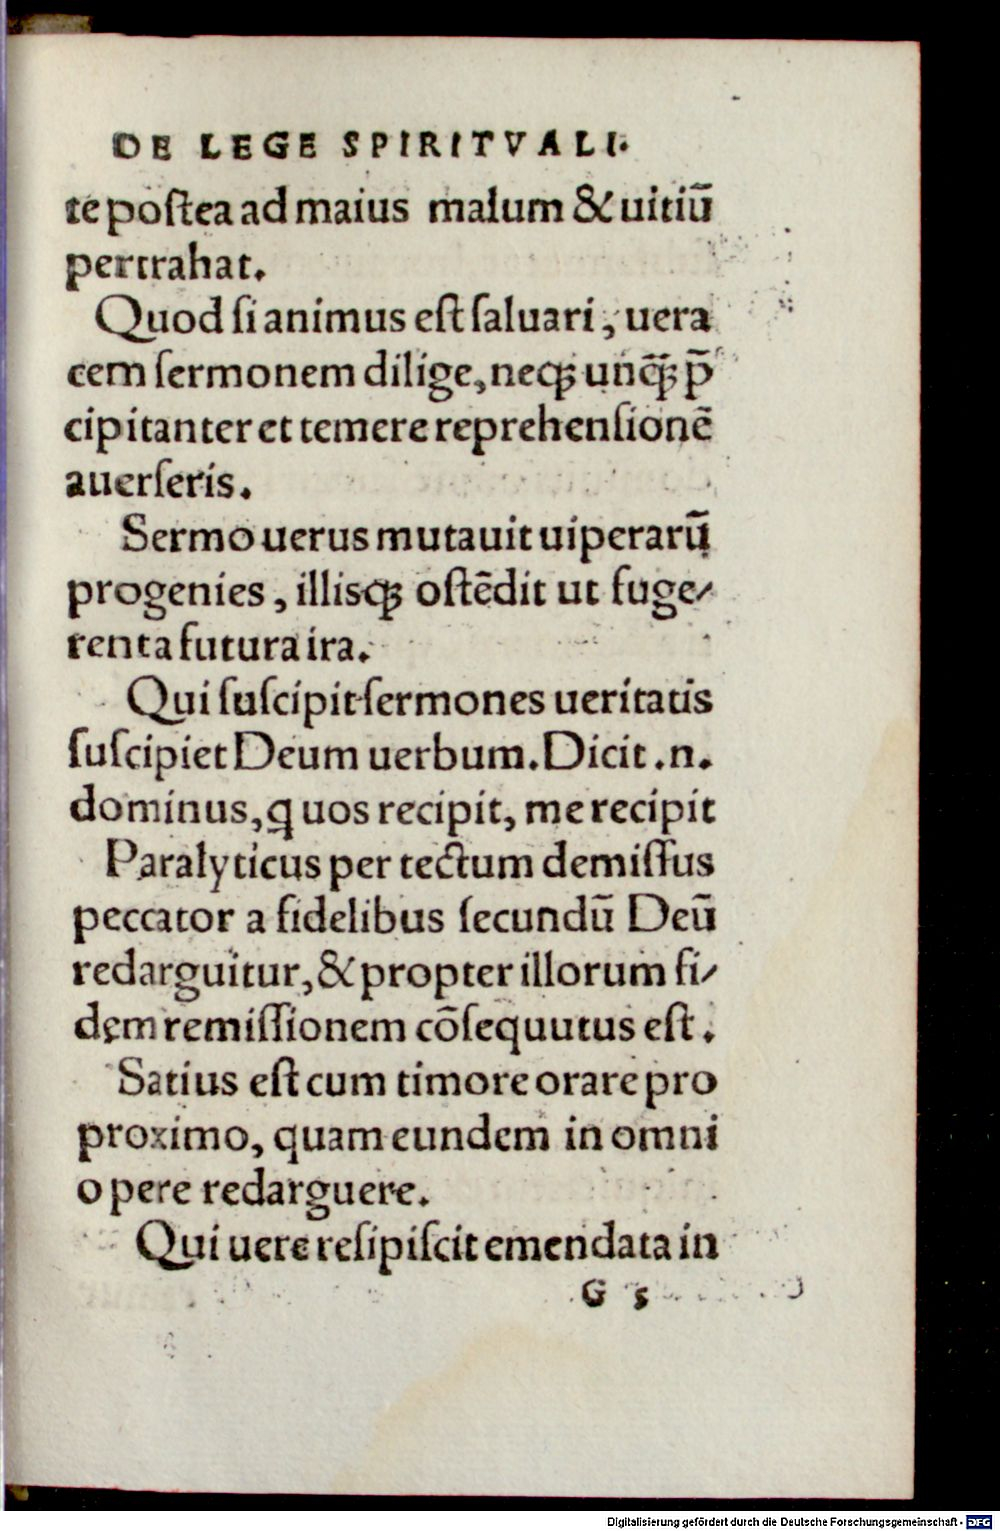 DE LEGE SPIRITVALI.
te postea ad maius malum & uitiū
pertrahat.
Quod si animus est saluari, uera
cem sermonem dilige, neqꝫ unq̄ꝫ p̄
cipitanter et temere reprehensionē
auerseris.
Sermo uerus mutauit uiperarū
progenies, illisqꝫ ostēdit ut fuge-
rent a futura ira.
Qui suscipit sermones ueritatis
suscipiet Deum uerbum. Dicit .n.
dominus, q uos recipit, me recipit
Paralyticus per tectum demissus
peccator a fidelibus secundū Deū
redarguitur, & propter illorum fi-
dem remissionem cōsequutus est.
Satius est cum timore orare pro
proximo, quam eundem in omni
opere redarguere.
Qui uere resipiscit emendata in
G 5
Digitalisierung gefördert durch die Deutsche Forschungsgemeinschaft - DFG